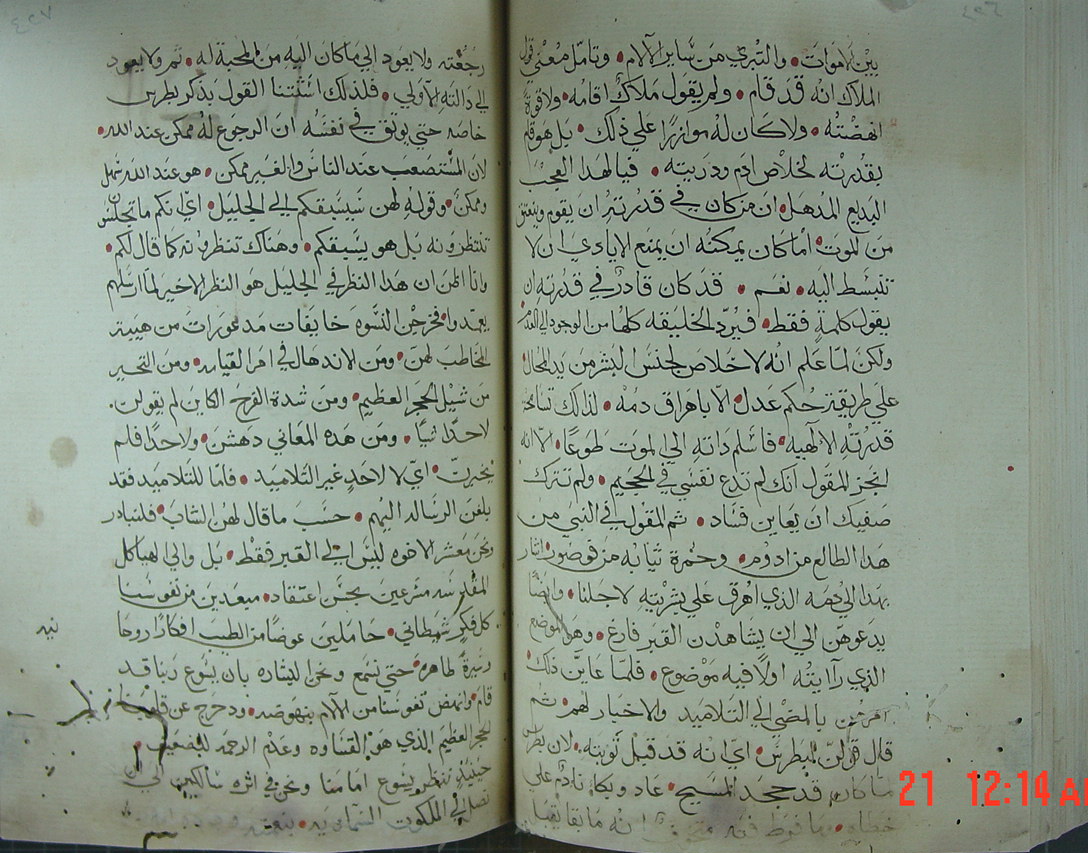 بين الاموات والتبري من ساير الالام وتامل معني قول
الملاك انه قد قام ولم يقول ملاك اقامه ولا قوة
انهضته ولا كان له موازرا علي ذلك بل هو قام
بقدرته لخلاص ادم ودريته فيا لهدا العجب
البديع المدهل ان من كان في قدرته ان يقوم وينعتق
من الموت اما كان يمكنه ان يمنع الايادي ان لا
تنبسط اليه نعم قد كان قادر في قدرته ان
يقول كلمة فقط فيرد الخليقه كلها من الوجود الي العدم
ولكن لما علم انه لا خلاص لجنس البشر من يد المحال
علي طريقة حكم عدل الا باهراق دمه لذلك
قدرته الالهيه فاسلم داته الي الموت طوعا الا انه
انجز المقول انك لم تدع نفسي في الجحيم ولم تترك
صفيك ان يعاين فساد ثم المقول في النبي من
هدا الطالع من ادوم وحمرة تيابه من قوصور اشار
بهدا الي دمه الذي اهرق علي بشريته لاجلنا وايضا
يدعوهن الي ان يشاهدن القبر فارغ وهو الموضع
الذي راايته اولا فيه موضوع فلما عاين ذلك
امرهن بالمضي الي التلاميد والاخبار لهم ثم
قال قولن لبطرس اي انه قد قبل توبته لان بطرس
ما كان قد جحد المسيح عاد وبكا نادم علي
خطاه انه ما بقا يقبل
رجعته ولا يعود الي ما كان اليه من المحبة له ثم ولا يعود
الي دالته الاولي فلذلك استتنا القول بذكر بطرس
خاصه حتي يوتق في نفسه ان الرجوع له ممكن عند الله
لان المستصعب عند الناس والغير ممكن هو عند الله سهل
وممكن وقوله لهن يسبقكم الي الجليل اي انكم ما تجلسن
تنتظرونه بل هو يسبقكم وهناك تنظرونه كما قال لكم
وانا اظن ان هذا النظر في الجليل هو النظر الاخير لما ارسلهم
يعمدوا فخرجن النسوه خايفات مدعورات من هيبة
المخاطب لهن ومن الاندهال في امر القيامه ومن التحير
من شيل الحجر العظيم ومن شدة الفرح الكاين لم يقولن
لاحدا شيا ومن هده المعاني دهشن ولاحدا فلم
يخبرن اي لا لاحد غير التلاميد فاما للتلاميد فقد
بلغن الرساله اليهم حسب ما قال لهن الشاب فلنبادر
ونحن معشر الاخوه ليس الي القبر فقط بل والي الهياكل
المقدسه متسرعين بحسن اعتقاد مبعدين من نفوسنا
كل فكر شيطاني حاملين عوضا من الطيب افكارا روحا
نيه
وسيرة طاهره حتي نسمع ونحن البشاره بان يسوع ربنا قد
قام وانهض نفوسنا من الالام بنهوضه ودحرج عن قلوبنا
الحجر العظيم الذي هو القساوه وعدم الرحمه للضعيف
حينيد ننظر يسوع امامنا ونحن في اثره سالكين الي ان
نصل الي الملكوت السماويه بنعمته
21 12:14 A